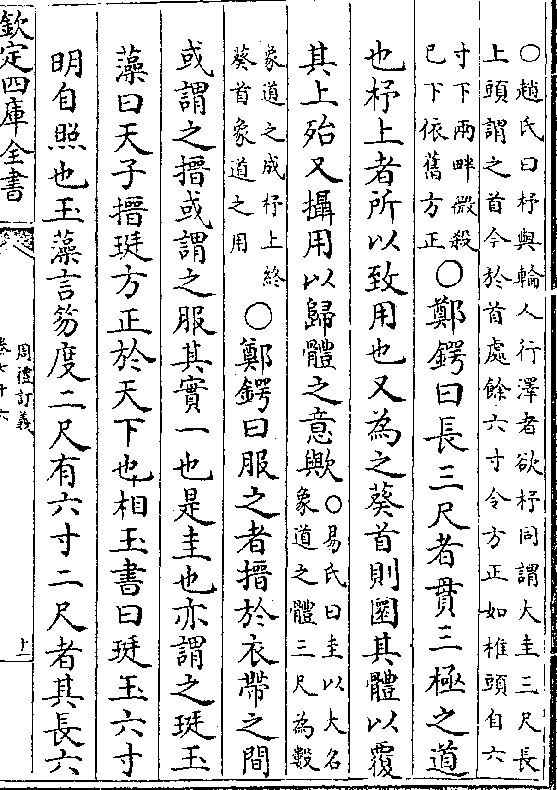 ○趙氏曰杼與輪人行澤者欲杼同謂大圭三尺長
上頭謂之首令於首處餘六寸令方正如椎頭自六
寸下兩畔微殺
已下依舊方正
○鄭鍔曰長三尺者貫三極之道
也杼上者所以致用也又為之葵首則圜其體以覆
其上殆又攝用以歸體之意歟
○易氏曰圭以大名
象道之體三尺為數
象道之成杼上終
葵首象道之用
○鄭鍔曰服之者搢於衣帶之間
或謂之搢或謂之服其實一也是圭也亦謂之珽玉
藻曰天子搢珽方正於天下也相玉書曰珽玉六寸
明自照也玉藻言笏度二尺有六寸二尺者其長六
欽定四庫全書
周禮訂義
卷七十六
十一